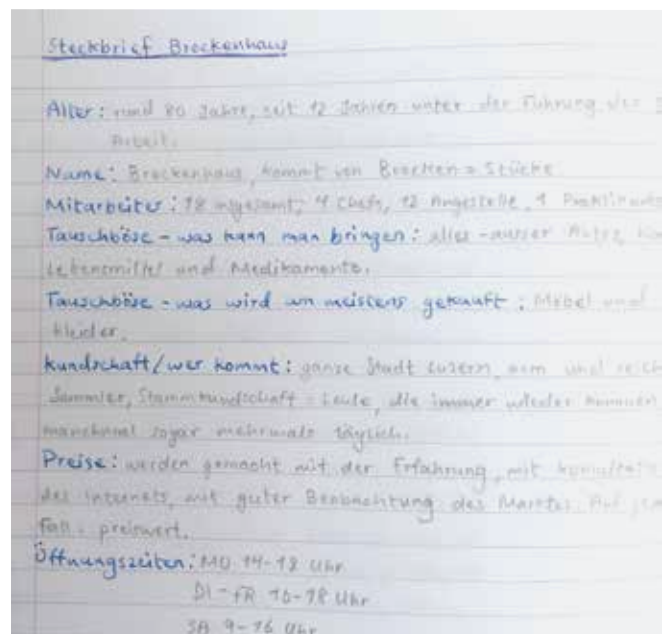 Steckbrief Brockenhaus
Alter: rund 80 Jahre, seit 12 Jahren unter der Führung der
Arbeit.
Name: Brockenhaus, kommt von Brocken = Stücke
Mitarbeiter: 18 insgesamt, 4 Chefs, 12 Angestelle, 1
Tauschböse - was kann man bringen: alles - ausser Autos,
Lebensmittel und Medikamente.
Tauschböse - was wird am meistens gekauft: Möbel und
Kleider.
Kundschaft/wer kommt: ganze Stadt Luzern, arm und reich
Sammler, Stammkundschaft = Leute, die immer wieder kommen
manchmal sogar mehrmals täglich.
Preise: werden gemacht mit der Erfahrung, mit
des Internets, mit guter Beobachtung des Marktes. Auf
Fall. preiswert.
Öffnungszeiten: MO 14-18 Uhr
DI - FR 10-18 Uhr
SA 9-16 Uhr